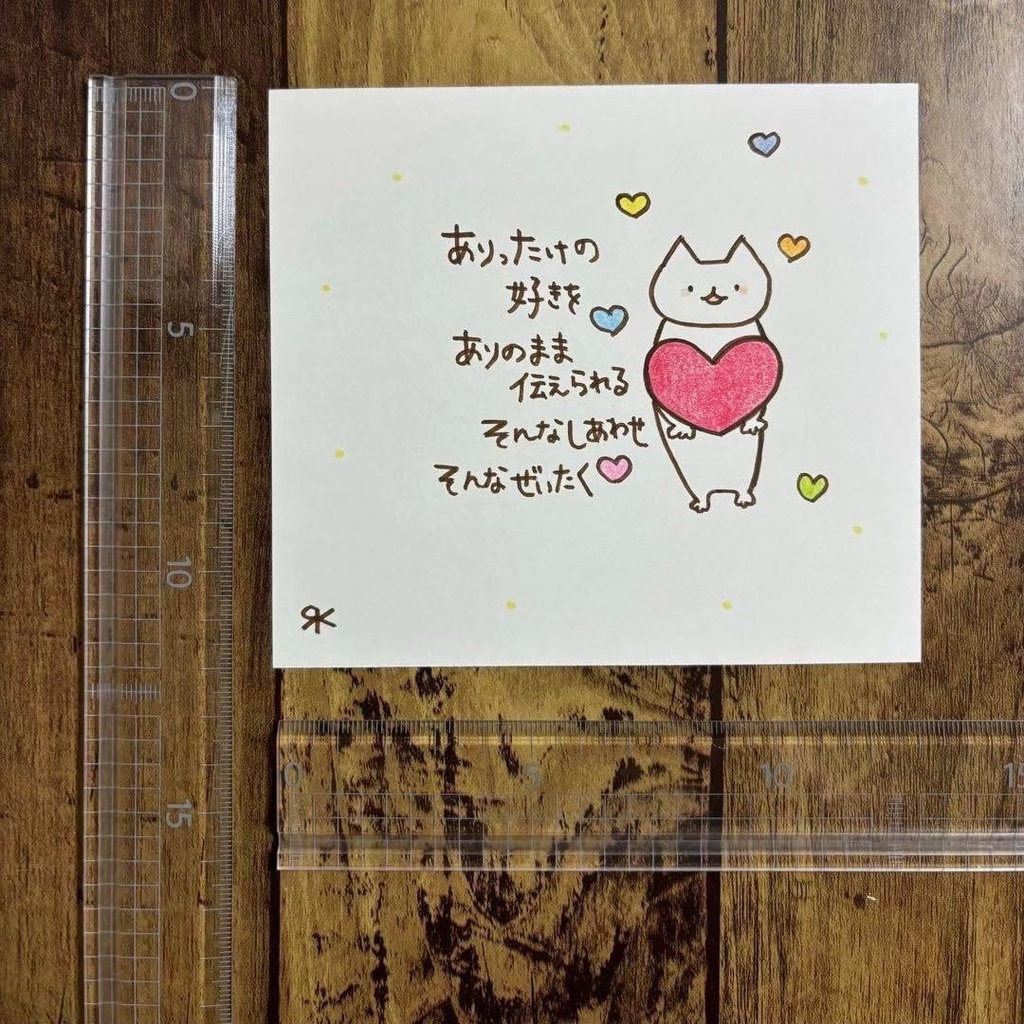 ありったけの
好きを
ありのまま
伝えられる
そんなしあわせ
そんなぜいたく
0
5
10
15
0
5
10
15